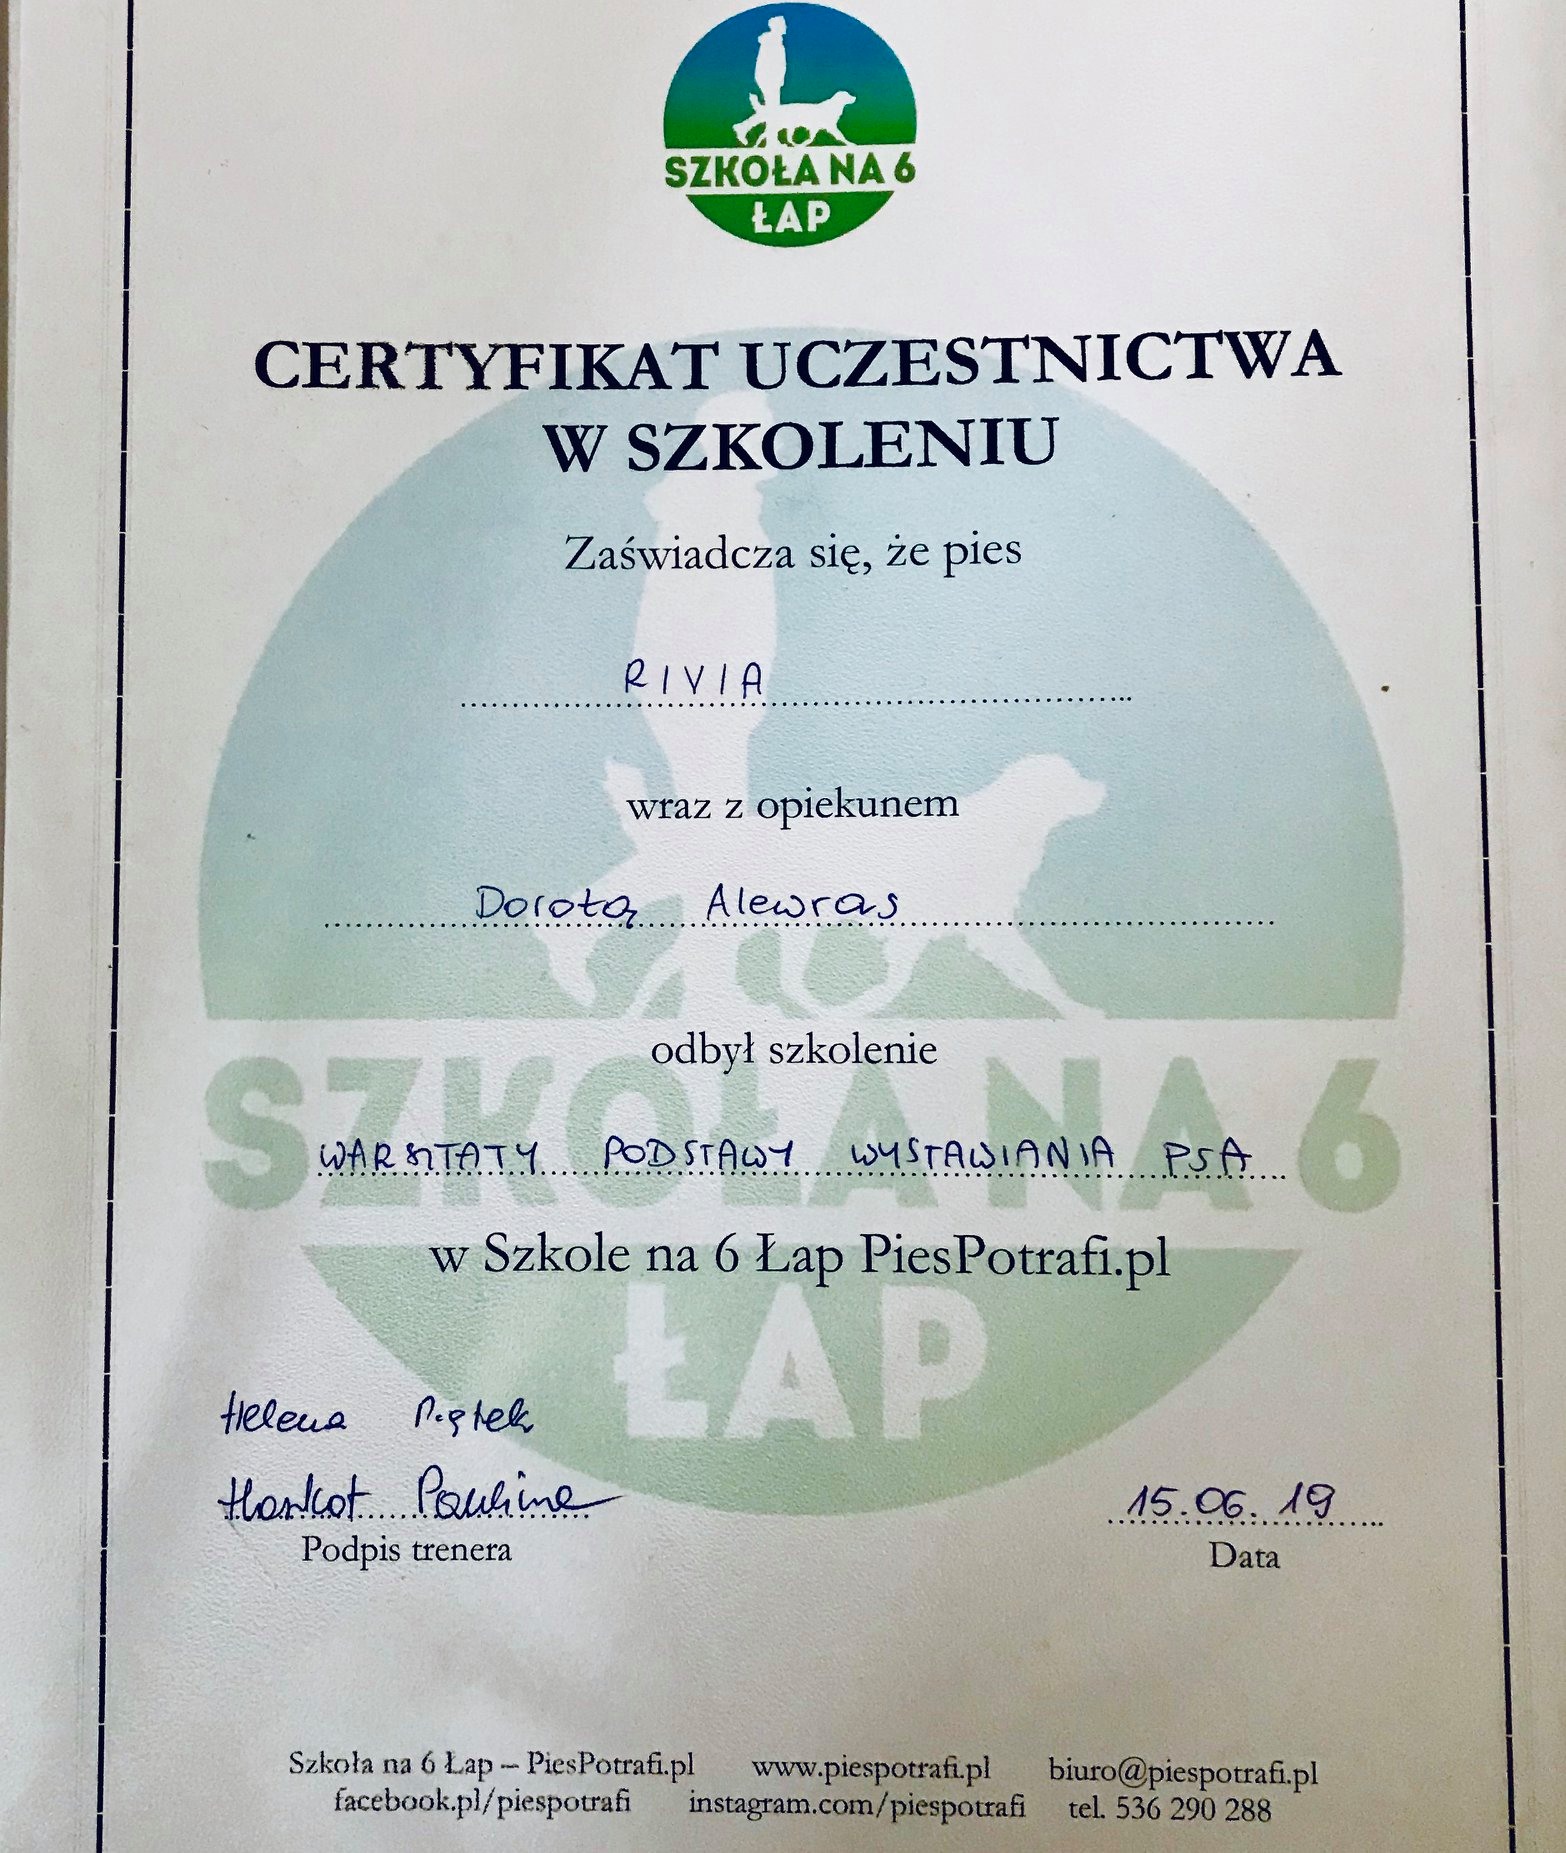 SZKOŁA NA 6
ŁAP
CERTYFIKAT UCZESTNICTWA
W SZKOLENIU
Zaświadcza się, że pies
RIVIA
wraz z opiekunem
Dorotą Alewras
odbył szkolenie
WARSZTATY PODSTAWY WYSTAWIANIA PSA
SZKOŁA NA 6
w Szkole na 6 Łap PiesPotrafi.pl
ŁAP
Helena Piątek
Paulina
15.06.19
Podpis trenera
Data
Szkoła na 6 Łap – PiesPotrafi.pl www.piespotrafi.pl biuro@piespotrafi.pl
facebook.pl/piespotrafi instagram.com/piespotrafi tel. 536 290 288